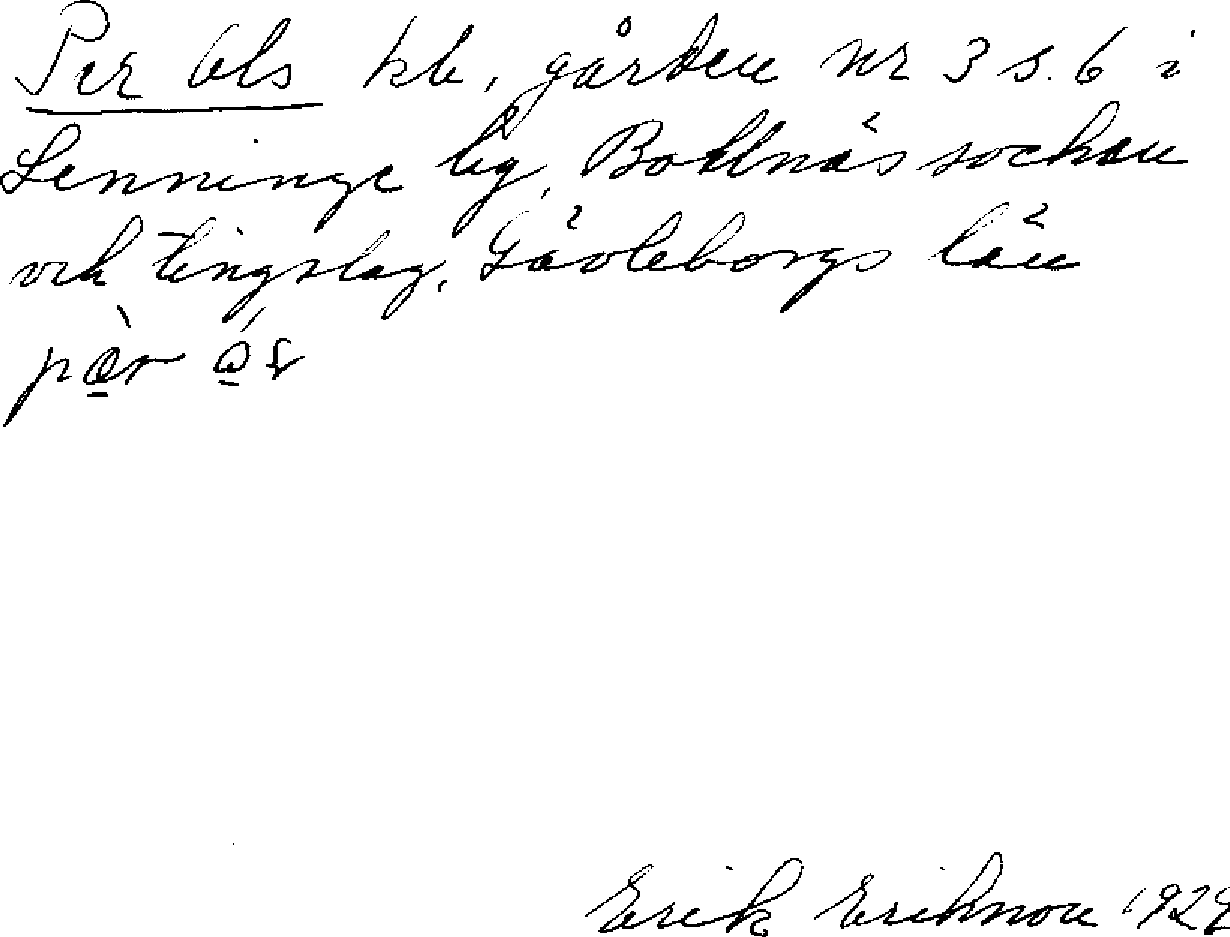 Per Ols kb, gården nr 3 s. 6 i
Lenninge by, Bollnäs socken
och tingslag, Gävleborgs län
pær
Erik Eriksson 1929